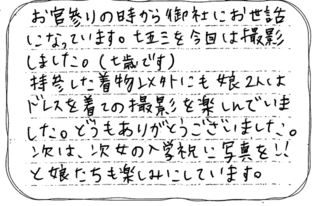 お宮参りの時から御社にお世話
になっています。七五三を今回は撮影
しました。(七歳です)
持参した着物以外にも娘2人は
ドレスを着ての撮影を楽しんでいま
した。どうもありがとうございました。
次は、次女の入学祝に写真を!!
と娘たちも楽しみにしています。